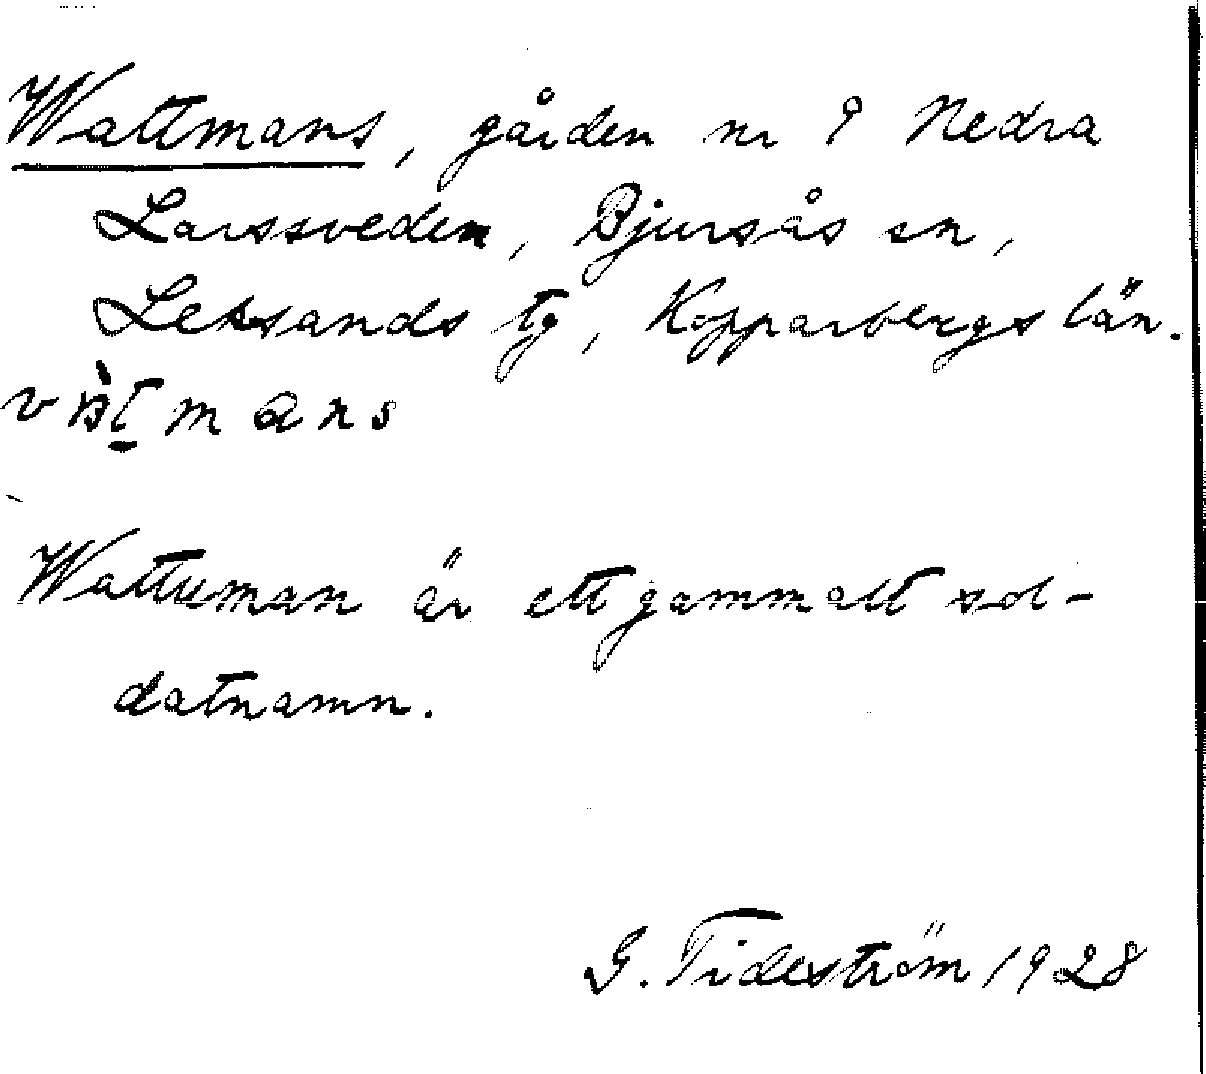 Wattmans, gården nr 9 Nedra
Larssveden, Bjursås sn,
Leksands tg, Kopparbergs län.
Wattuman är ett gammalt sol-
datnamn.
G. Tideström 1928